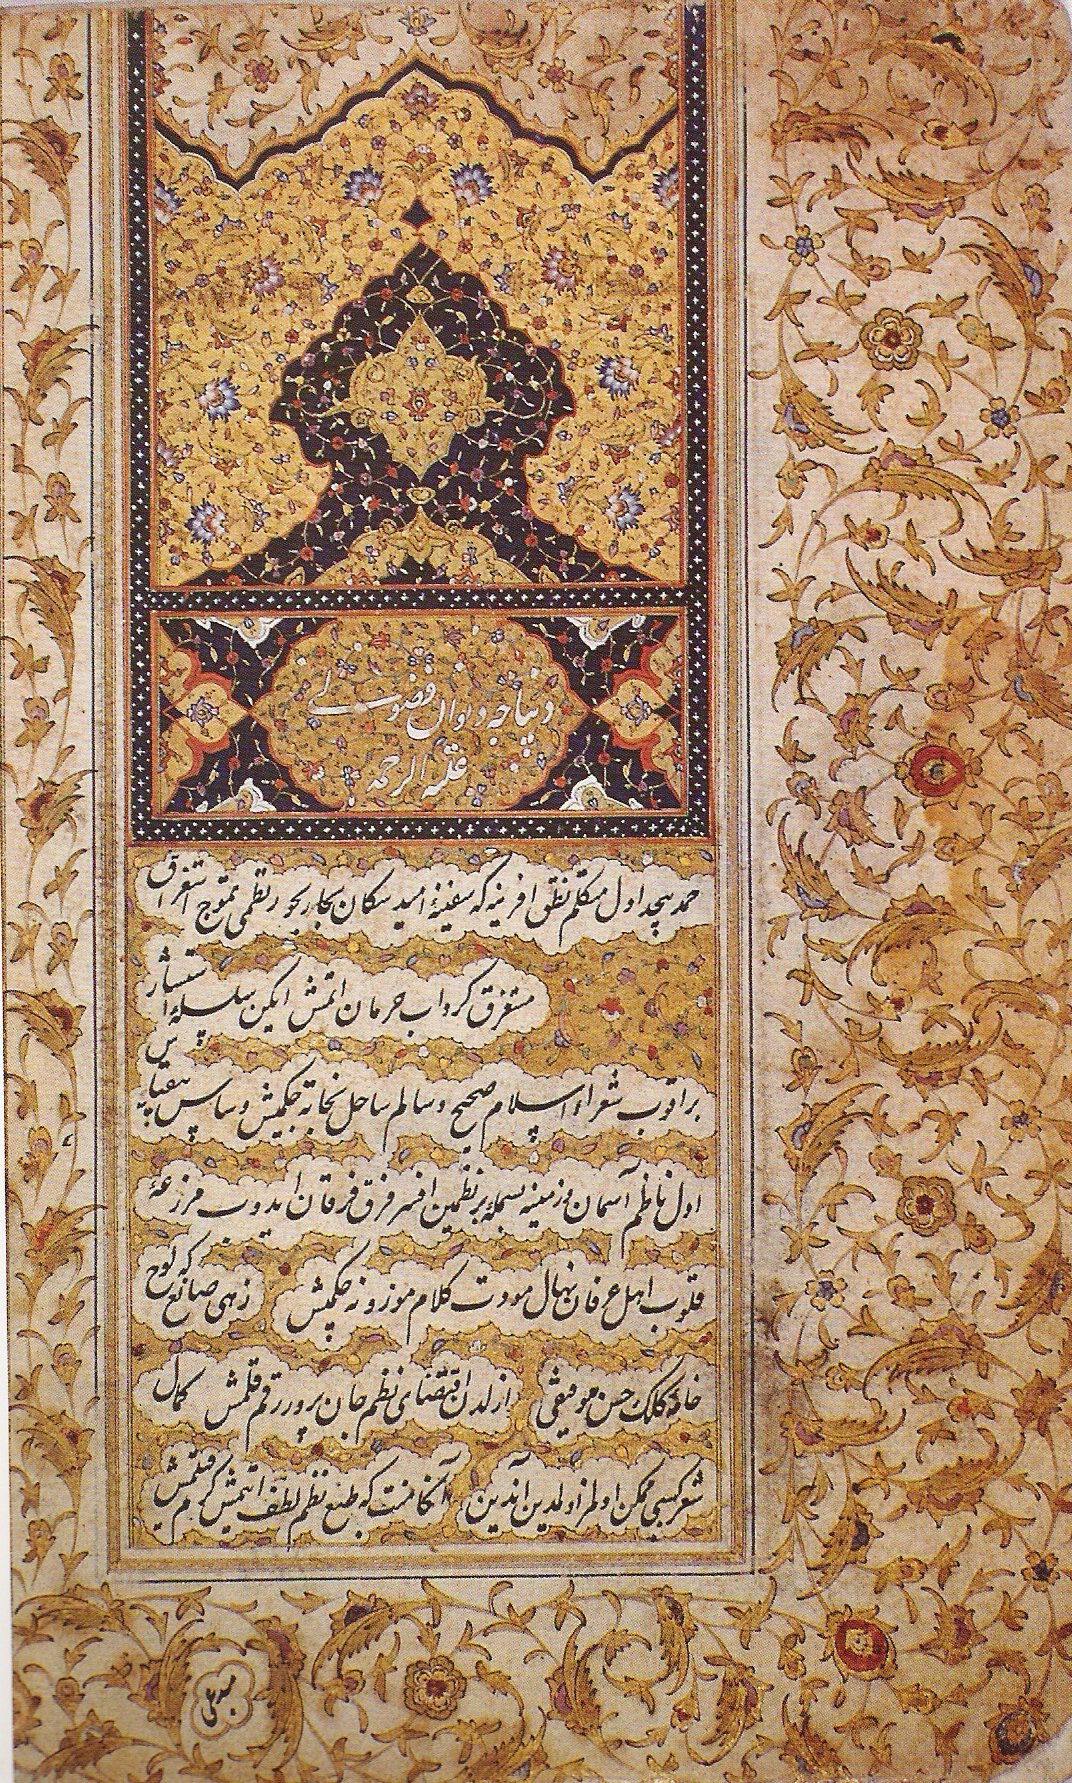 دیباجه دیوان فضولی
علیه الرحمه
حمد بیحد اول متکلم نطق افرینه که سفینهٔ امید سکان بحار بحور نظمی تموج استغراق
مستغرق کرداب حرمان اتمش ایکن سلسلهٔ استیشار
براقوب شعراء اسلام صحیح و سالم ساحل نجاته چکمیش و سپاس بیقیاس
اول ناظم آسمان و زمینه بسملهٔ بر نظمین افسر فرق فرقان ایدوب مزرعهٔ
قلوب اهل عرفانه نهال مودت کلام موزونه چکمیش زهی صانع که لوح
خامهٔ کلک حسن موفیقی ازلدن اقتضای نظم جان پرور رقم قلمش کمال
شعر کسبی ممکن اولمز اولمدین آندین آکا منت که طبع نظم لطف اتمیش کرم قیلمیش